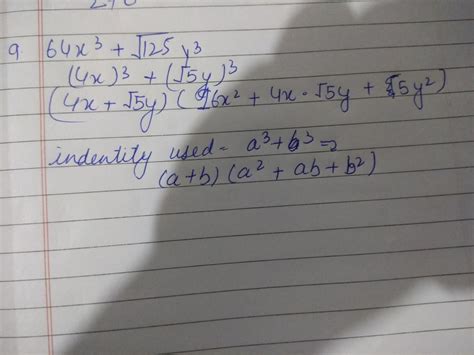 9 64x³ + √125 y³
(4x)³ + (√5y)³
(4x + √5y) (16x² + 4x · √5y + 5y²)
indentity used = a³ + b³ ⇒
(a+b) (a² + ab + b²)